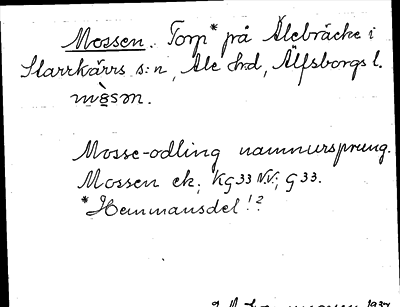 Mossen. Torp* på Älebräcke i
Starrkärrs s:n, Ale hd, Älfsborgs l.
mòsən.
Mosse-odling namnursprung.
Mossen ek; KG33 N.V.; G33.
*Hemmansdel!?
1937